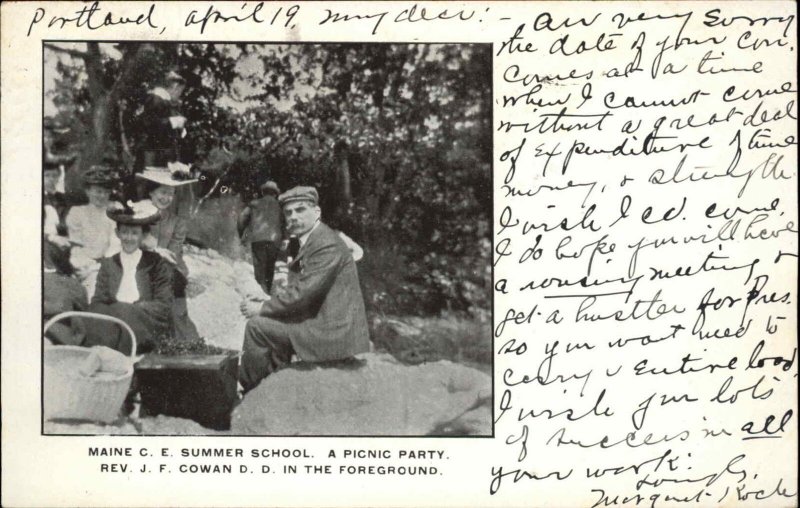 Portland, April 19, My dear: - Am very sorry
the date of your Con.
comes at a time
when I cannot come
without a great deal
of expenditure of time
money, & strength
I wish I cd. come.
I do hope you will have
a rousing meeting &
get a hustler for Pres.
so you wont need to
carry entire load
I wish you lots
of success in all
your work.
Margaret Koch
MAINE C. E. SUMMER SCHOOL. A PICNIC PARTY.
REV. J. F. COWAN D. D. IN THE FOREGROUND.